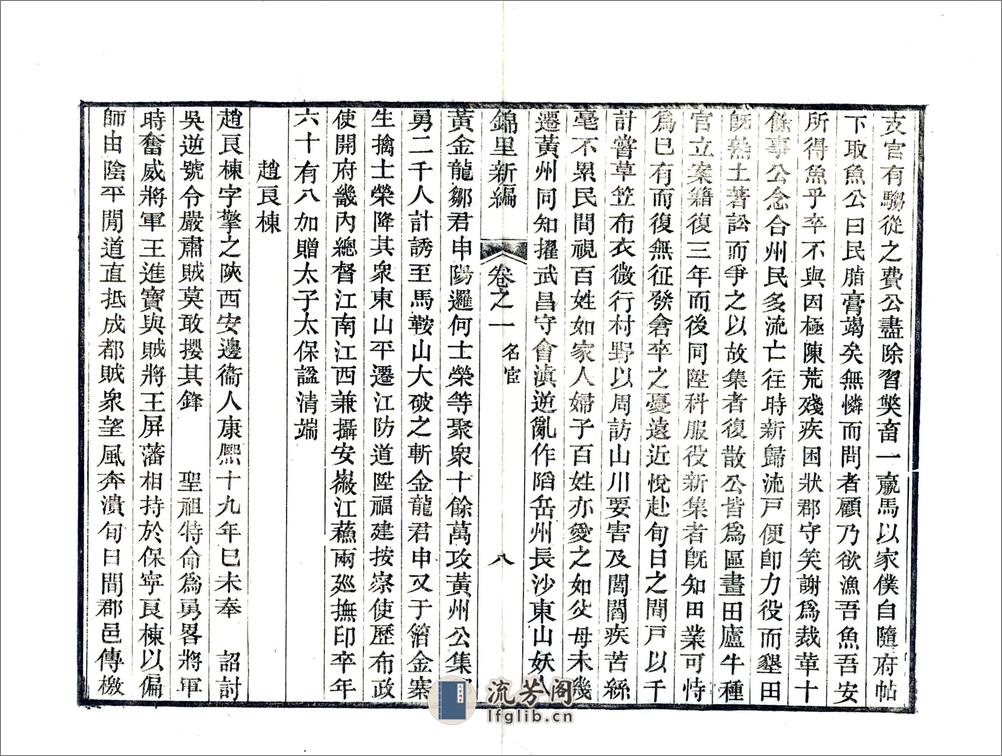 支官有騶從之費公盡除習獘畜一羸馬以家僕自隨府帖
下取魚公曰民脂膏竭矣無憐而問者顧乃欲漁吾魚吾安
所得魚乎卒不與因極陳荒殘疾困狀郡守笑謝爲裁革十
餘事公念合州民多流亡往時新歸流戸便卽力役而墾田
旣熟土著訟而爭之以故集者復散公皆爲區畫田廬牛種
官立案籍復三年而後同陞科服役新集者旣知田業可恃
爲已有而復無征發倉卒之憂遠近悅赴旬日之間戸以千
計嘗草笠布衣微行村野以周訪山川要害及閭閻疾苦絲
毫不累民間視百姓如家人婦子百姓亦愛之如父母未幾
遷黃州同知擢武昌守會滇逆亂作陷岳州長沙東山妖
錦里新編 卷之一 名宦 八
黃金龍鄒君申陽邏何士榮等聚衆十餘萬攻黃州公集
勇二千人計誘至馬鞍山大破之斬金龍君申又于箵金寨
生擒士榮降其衆東山平遷江防道陞福建按察使歷布政
使開府畿內總督江南江西兼攝安徽江蘇兩廵撫印卒年
六十有八加贈太子太保諡清端
趙良棟
趙良棟字擎之陝西安邊衞人康熙十九年已未奉 詔討
吳逆號令嚴肅賊莫敢攖其鋒 聖祖特命爲勇畧將軍
時奮威將軍王進寶與賊將王屏藩相持於保寧良棟以偏
師由陰平閒道直抵成都賊衆望風奔潰旬日間郡邑傳檄
流芳阁
lfglib.cn